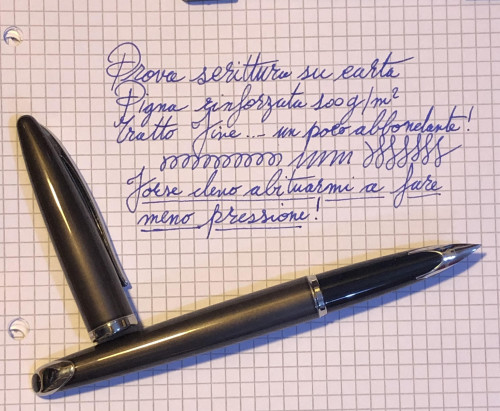 Prova scrittura su carta
Pigna rinforzata 100g/m²
Tratto fine... un poco abbondante!
Forse devo abituarmi a fare
meno pressione!